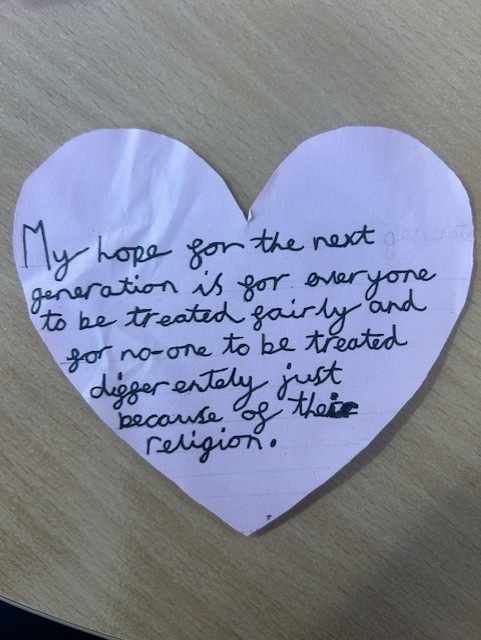 My hope for the next
generation is for everyone
to be treated fairly and
for no-one to be treated
differentely just
because of their
religion.